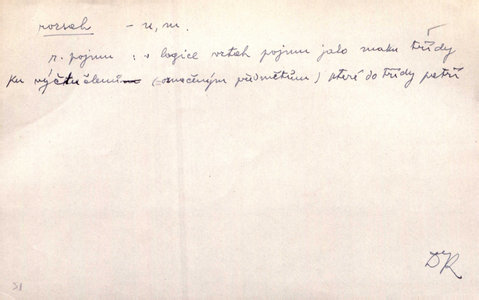 rozsah – u, m.
r. pojmu : v logice vztah pojmu jako znaku třídy
ku výčtu členů (označným předmětům) které do třídy patří
DR
51